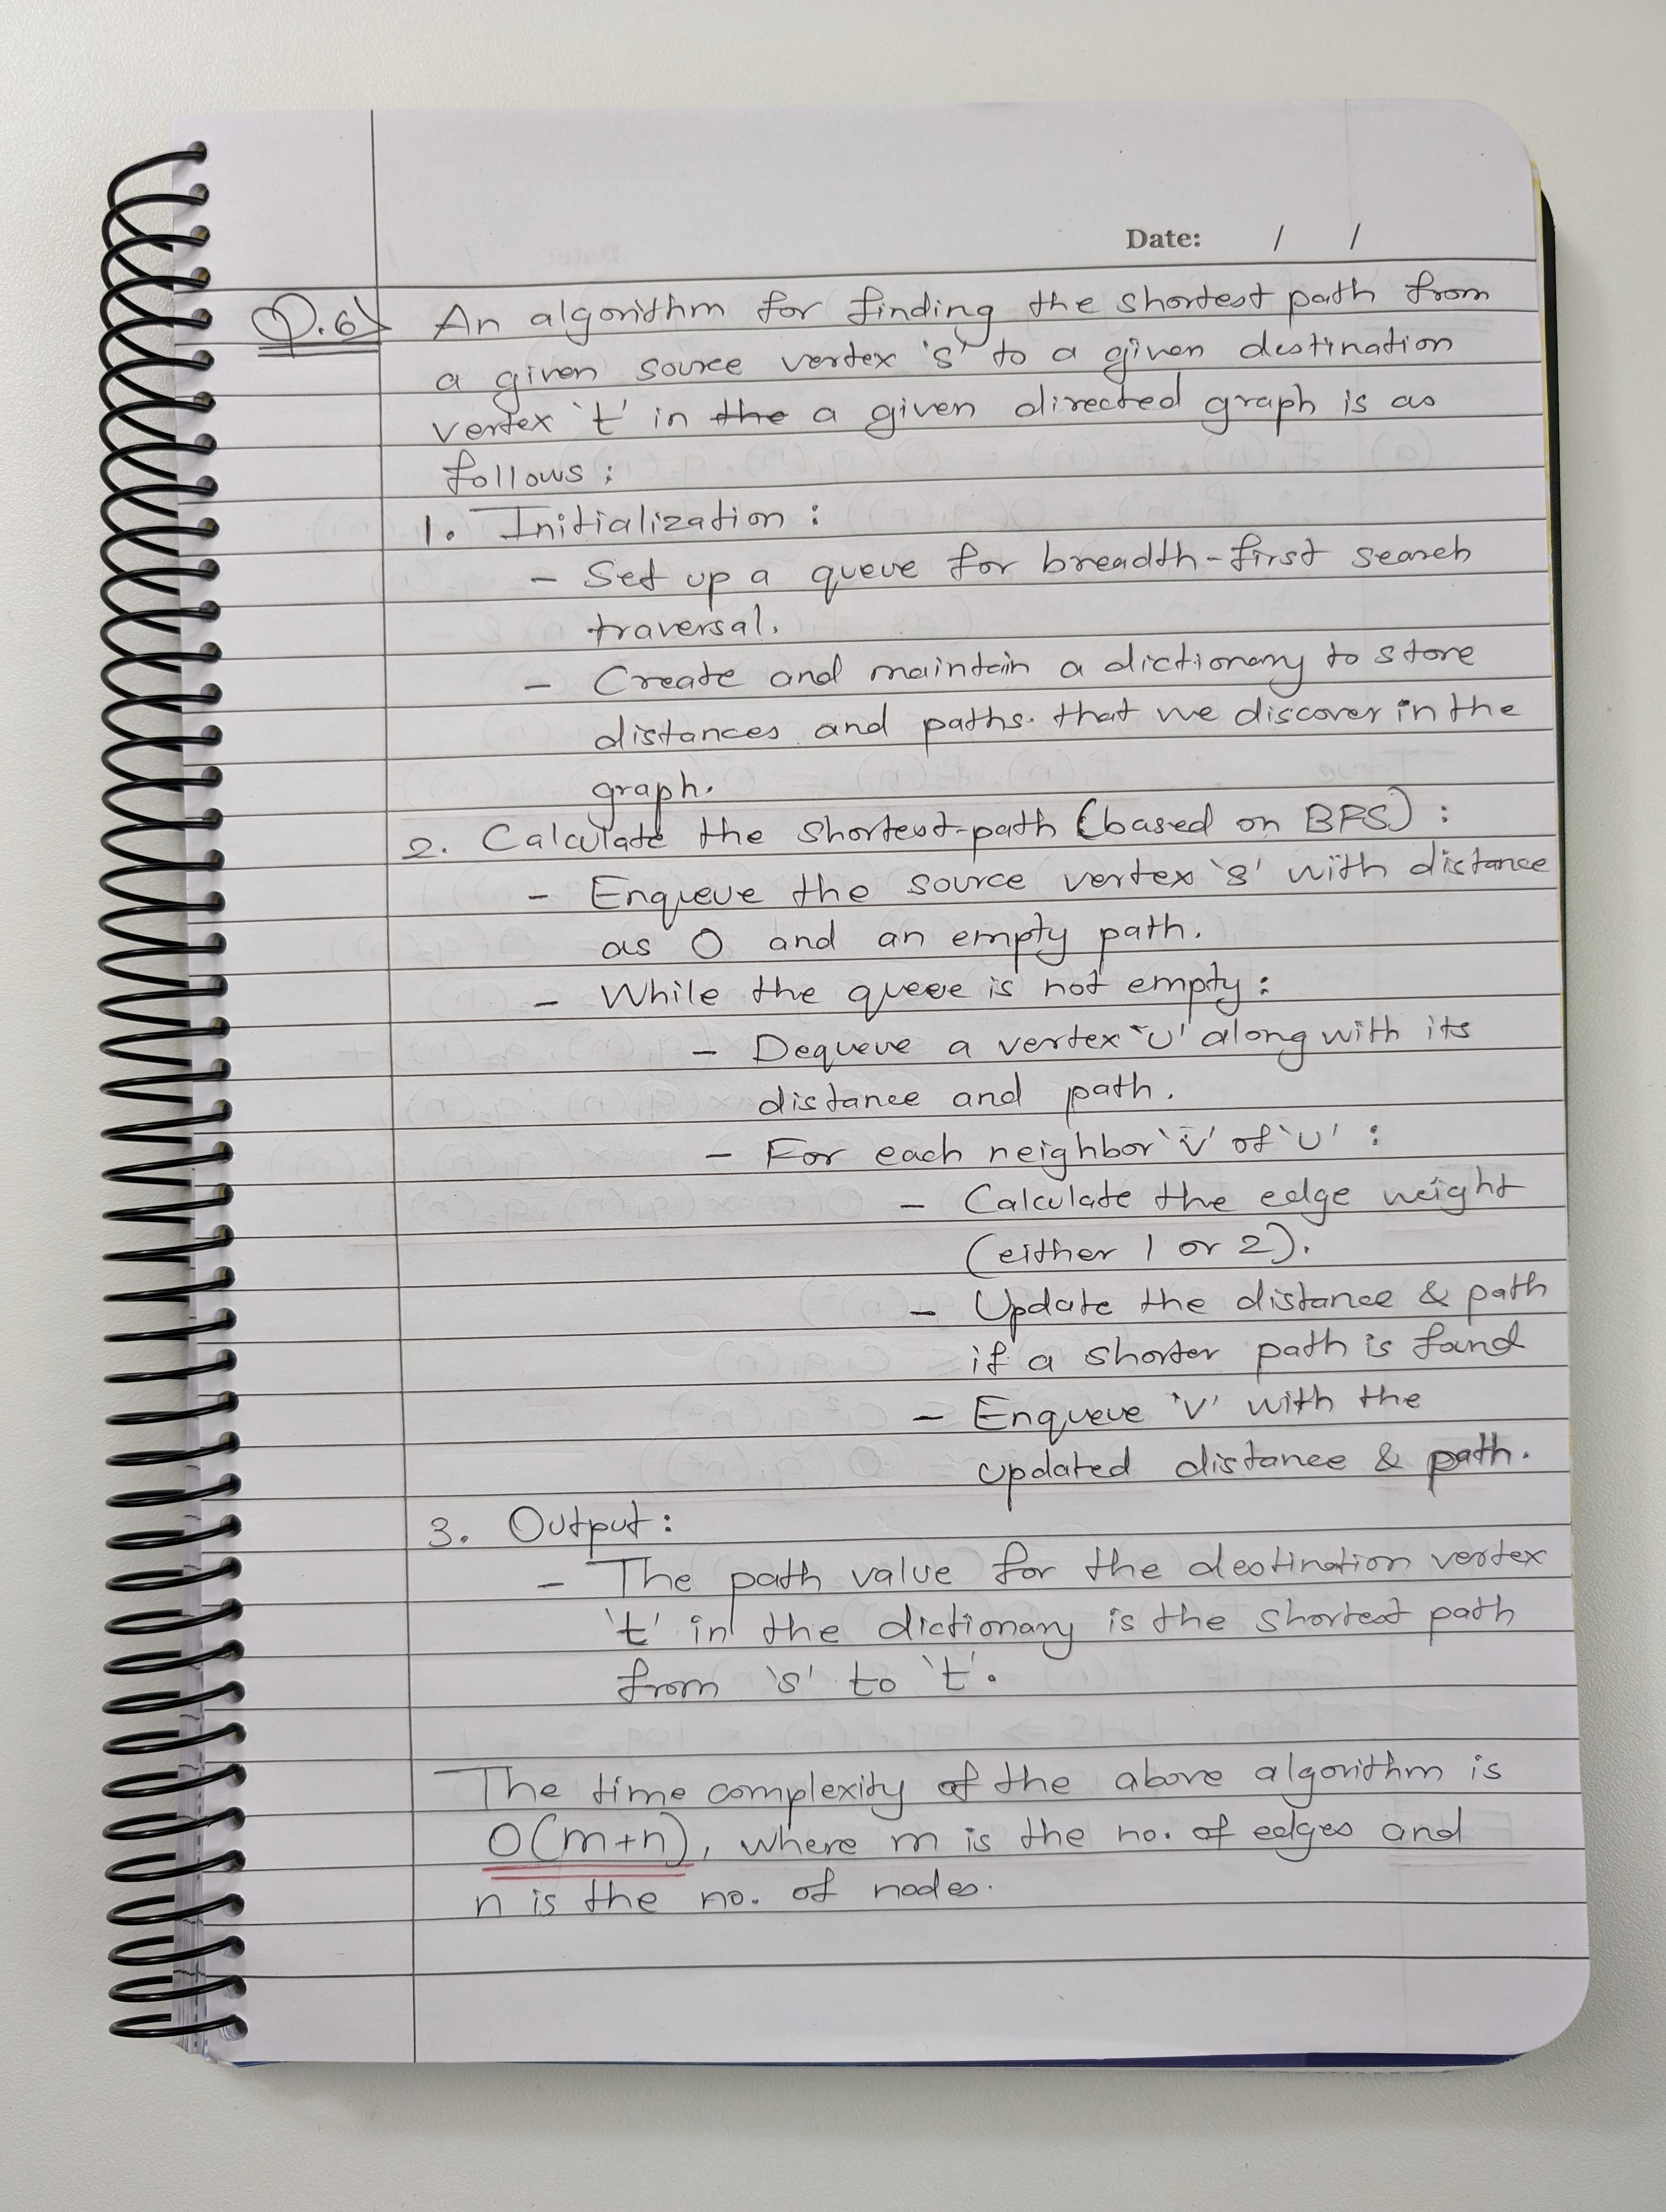 Date: / /
Q.6> An algorithm for finding the shortest path from
a given source vertex 's' to a given destination
vertex 't' in the a given directed graph is as
follows:
1. Initialization:
- Set up a queue for breadth-first search
traversal.
- Create and maintain a dictionary to store
distances and paths. that we discover in the
graph.
2. Calculate the shortest-path (based on BFS):
- Enqueue the source vertex 's' with distance
as 0 and an empty path.
- While the queue is not empty:
- Dequeue a vertex 'u' along with its
distance and path.
- For each neighbor 'v' of 'u':
- Calculate the edge weight
(either 1 or 2).
- Update the distance & path
if a shorter path is found
- Enqueue 'v' with the
updated distance & path.
3. Output:
- The path value for the destination vertex
't' in the dictionary is the shortest path
from 's' to 't'.
The time complexity of the above algorithm is
O(m+n), where m is the no. of edges and
n is the no. of nodes.